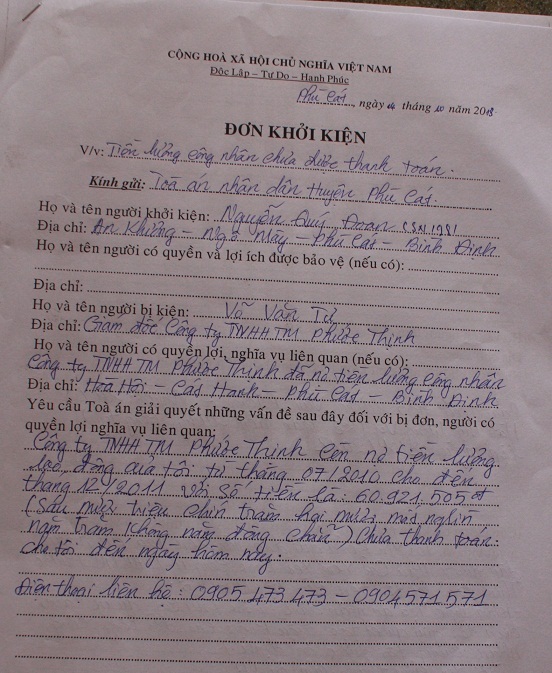 CỘNG HOÀ XÃ HỘI CHỦ NGHĨA VIỆT NAM
Độc Lập – Tự Do – Hạnh Phúc
Phù Cát, ngày 04 tháng 10 năm 2018
ĐƠN KHỞI KIỆN
V/v: Tiền lương công nhân chưa được thanh toán.
Kính gửi: Toà án nhân dân huyện Phù Cát.
Họ và tên người khởi kiện: Nguyễn Quý Đoan (SN 1981
Địa chỉ: An Khương – Ngô Mây – Phù Cát – Bình Định
Họ và tên người có quyền và lợi ích được bảo vệ (nếu có):
Địa chỉ:
Họ và tên người bị kiện: Võ Văn Tư
Địa chỉ: Giám đốc Công ty TNHH TM Phước Thịnh
Họ và tên người có quyền lợi, nghĩa vụ liên quan (nếu có):
Công ty TNHH TM Phước Thịnh đã nợ tiền lương công nhân
Địa chỉ: Hoà Hội – Cát Hanh – Phù Cát – Bình Định
Yêu cầu Toà án giải quyết những vấn đề sau đây đối với bị đơn, người có
quyền lợi nghĩa vụ liên quan:
Công ty TNHH TM Phước Thịnh còn nợ tiền lương
lao động của tôi từ tháng 07/2010 cho đến
tháng 12/2011 với số tiền là: 60.921.505đ
(Sáu mươi triệu chín trăm hai mươi mốt nghìn
năm trăm không năm đồng chẵn) chưa thanh toán
cho tôi đến ngày hôm nay.
Điện thoại liên hệ: 0905 473 473 – 0904571571